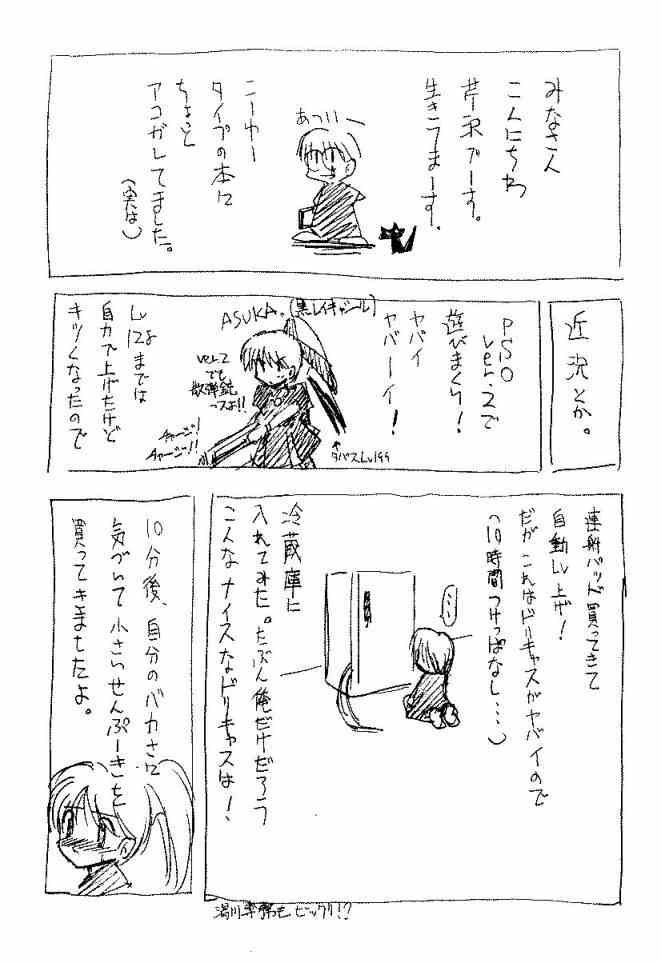 みなさん
こんにちわ
芹沢でーす。
生きてまーす。
あつい〜
こーゆー
タイプの本に
ちょっと
アコガレてました。
(実は)
近況とか。
PSO
ver.2で
遊びまくり!
ヤバイ
ヤバーイ!
ASUKA.(黒レイキャシール)
ver.2
でも
散弾銃
っスよ!!
チャージ!
チャージ!!
Lv
128までは
自力で上げたけど
キツくなったので
連射パッド買ってきて
自動Lv上げ!
だがこれはドリキャスがヤバイので
(10時間つけっぱなし…)
・・・
冷蔵庫に
入れてみた。たぶん俺だけだろう
こんなナイスなドリキャスは!
湯川専務もビックリ!?
10分後、自分のバカさに
気づいて小さいせんぷーきを
買ってきましたよ。